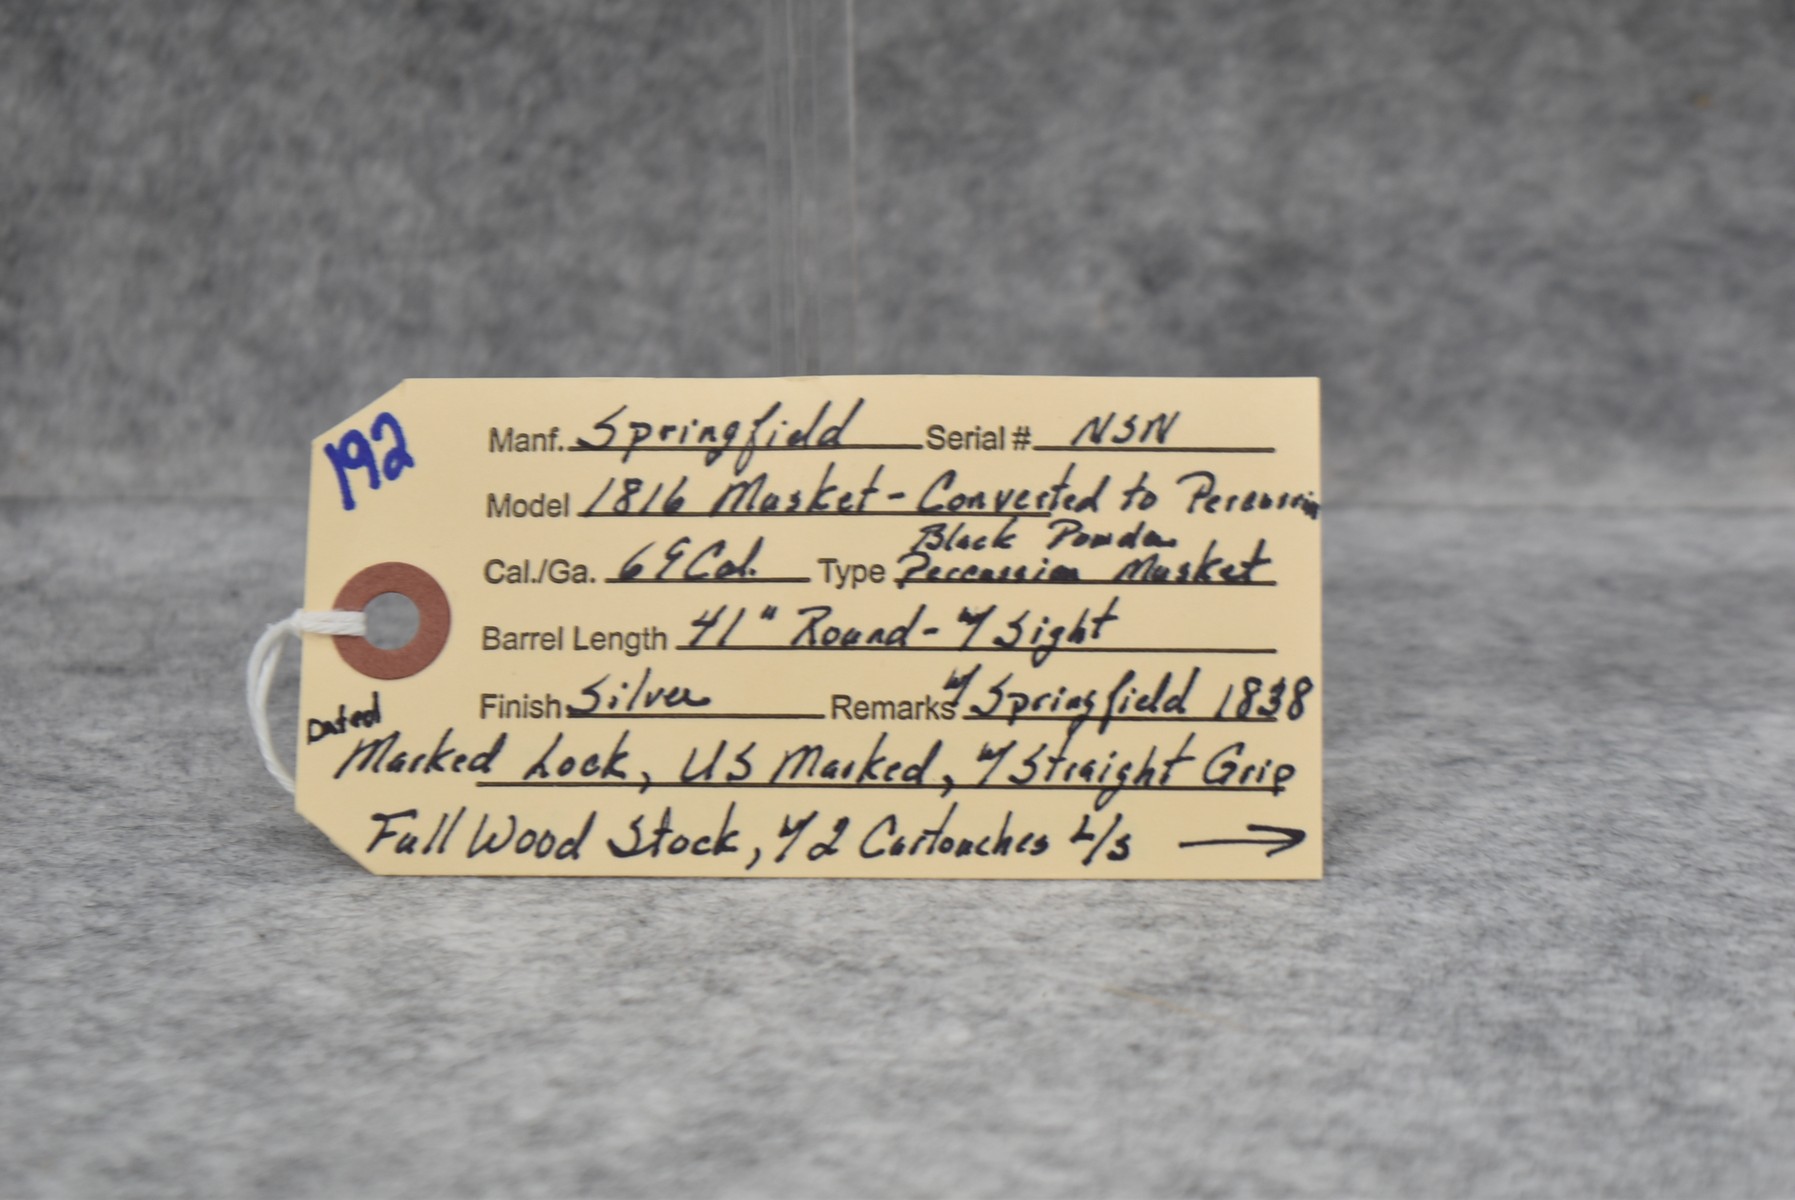 192
Manf. Springfield Serial # NSN
Model 1816 Musket - Converted to Percussion
Black Powder
Cal./Ga. 69 Cal. Type Percussion Musket
Barrel Length 41" Round - w/ Sight
Finish Silver Remarks w/ Springfield 1838
Dated
Marked Lock, US Marked, w/ Straight Grip
Full Wood Stock, w/ 2 Cartouches L/S →